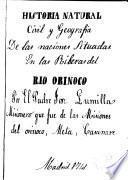 HISTORIA NATURAL
Civil y Geografia
De las naciones Situadas
En las Riberas del
RIO ORINOCO
Por El Padre Jos. Lumilla
Misionero que fue de las Misiones
del orinoco, Meta, Casanare
Madrid 1741